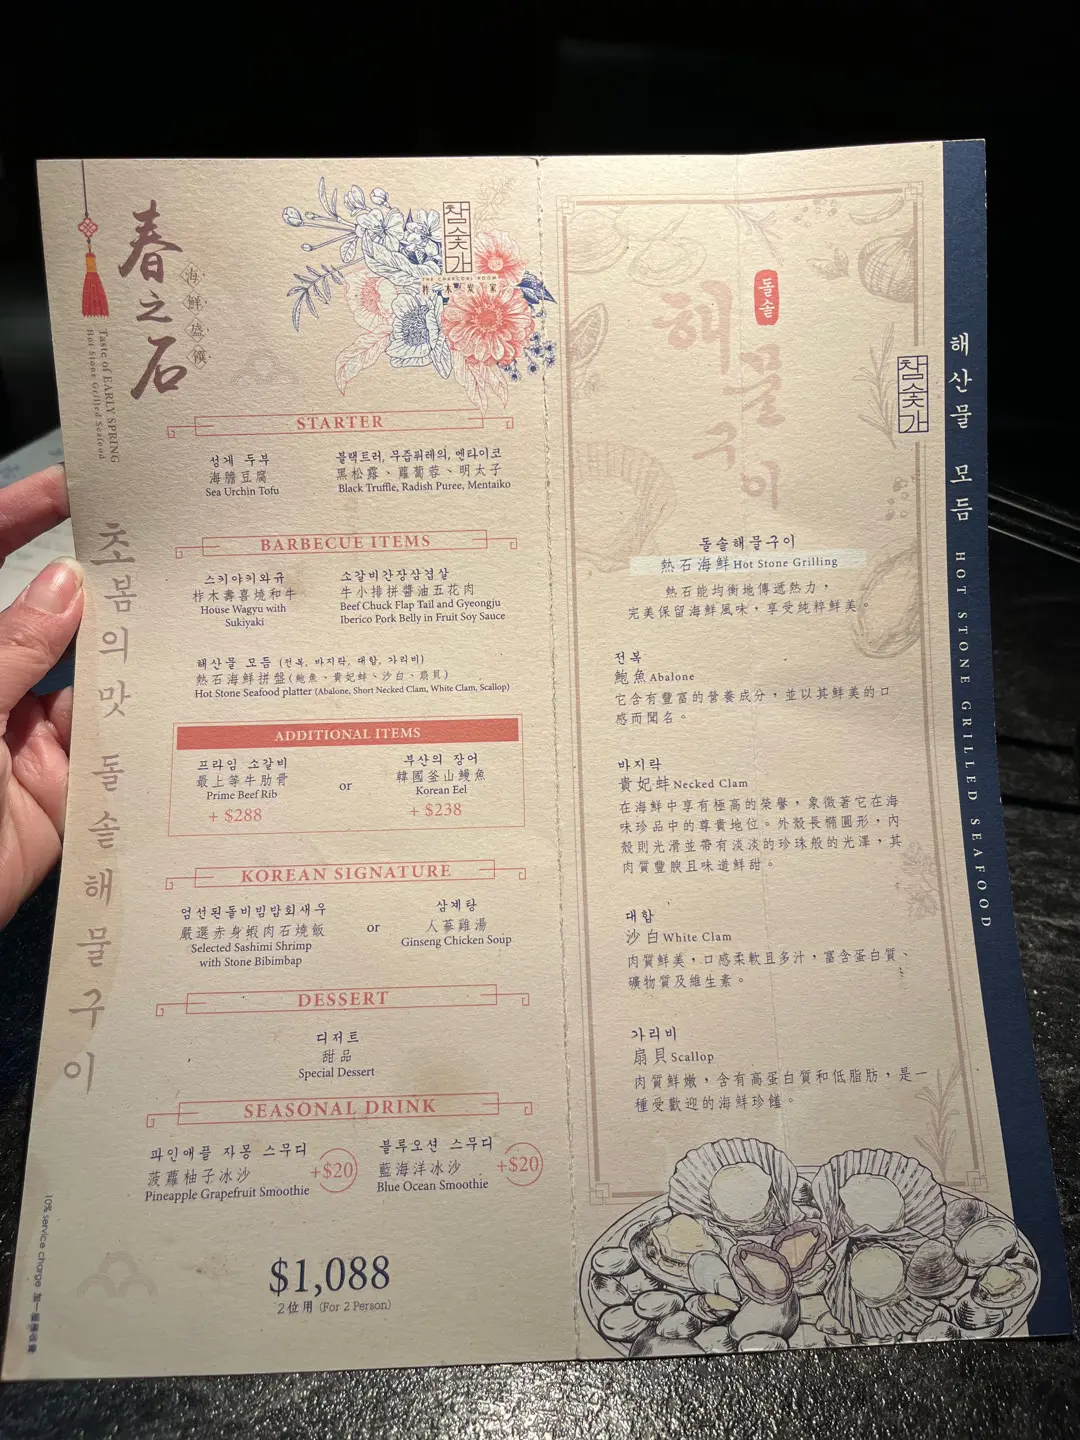 春之石
海鮮盛饌
Taste of EARLY SPRING
Hot Stone Grilled Seafood
초봄의 맛 돌솥해물구이
참숯가
THE CHARCOAL ROOM
柞木炭家
STARTER
성게 두부
海膽豆腐
Sea Urchin Tofu
블랙트러, 무즙퓌레의, 멘타이코
黑松露、蘿蔔蓉、明太子
Black Truffle, Radish Puree, Mentaiko
BARBECUE ITEMS
스키야키와규
柞木壽喜燒和牛
House Wagyu with
Sukiyaki
소갈비간장삼겹살
牛小排拼醬油五花肉
Beef Chuck Flap Tail and Gyeongju
Iberico Pork Belly in Fruit Soy Sauce
해산물 모듬 (전복, 바지락, 대합, 가리비)
熱石海鮮拼盤(鮑魚、貴妃蚌、沙白、扇貝)
Hot Stone Seafood platter (Abalone, Short Necked Clam, White Clam, Scallop)
ADDITIONAL ITEMS
프라임 소갈비
最上等牛肋骨
Prime Beef Rib
+ $288
or
부산의 장어
韓國釜山鰻魚
Korean Eel
+ $238
KOREAN SIGNATURE
엄선된돌비빔밥회새우
嚴選赤身蝦肉石燒飯
Selected Sashimi Shrimp
with Stone Bibimbap
or
삼계탕
人蔘雞湯
Ginseng Chicken Soup
DESSERT
디저트
甜品
Special Dessert
SEASONAL DRINK
파인애플 자몽 스무디
菠蘿柚子冰沙
Pineapple Grapefruit Smoothie
+$20
블루오션 스무디
藍海洋冰沙
Blue Ocean Smoothie
+$20
$1,088
2位用 (For 2 Person)
10% service charge 另一服務費
돌솥
해물구이
참숯가
돌솥해물구이
熱石海鮮 Hot Stone Grilling
熱石能均衡地傳遞熱力，
完美保留海鮮風味，享受純粹鮮美。
전복
鮑魚 Abalone
它含有豐富的營養成分，並以其鮮美的口
感而聞名。
바지락
貴妃蚌 Necked Clam
在海鮮中享有極高的榮譽，象徵著它在海
味珍品中的尊貴地位。外殼長橢圓形，內
殼則光滑並帶有淡淡的珍珠般的光澤，其
肉質豐腴且味道鮮甜。
대합
沙白 White Clam
肉質鮮美，口感柔軟且多汁，富含蛋白質、
礦物質及維生素。
가리비
扇貝 Scallop
肉質鮮嫩，含有高蛋白質和低脂肪，是一
種受歡迎的海鮮珍饈。
해산물 모듬 HOT STONE GRILLED SEAFOOD